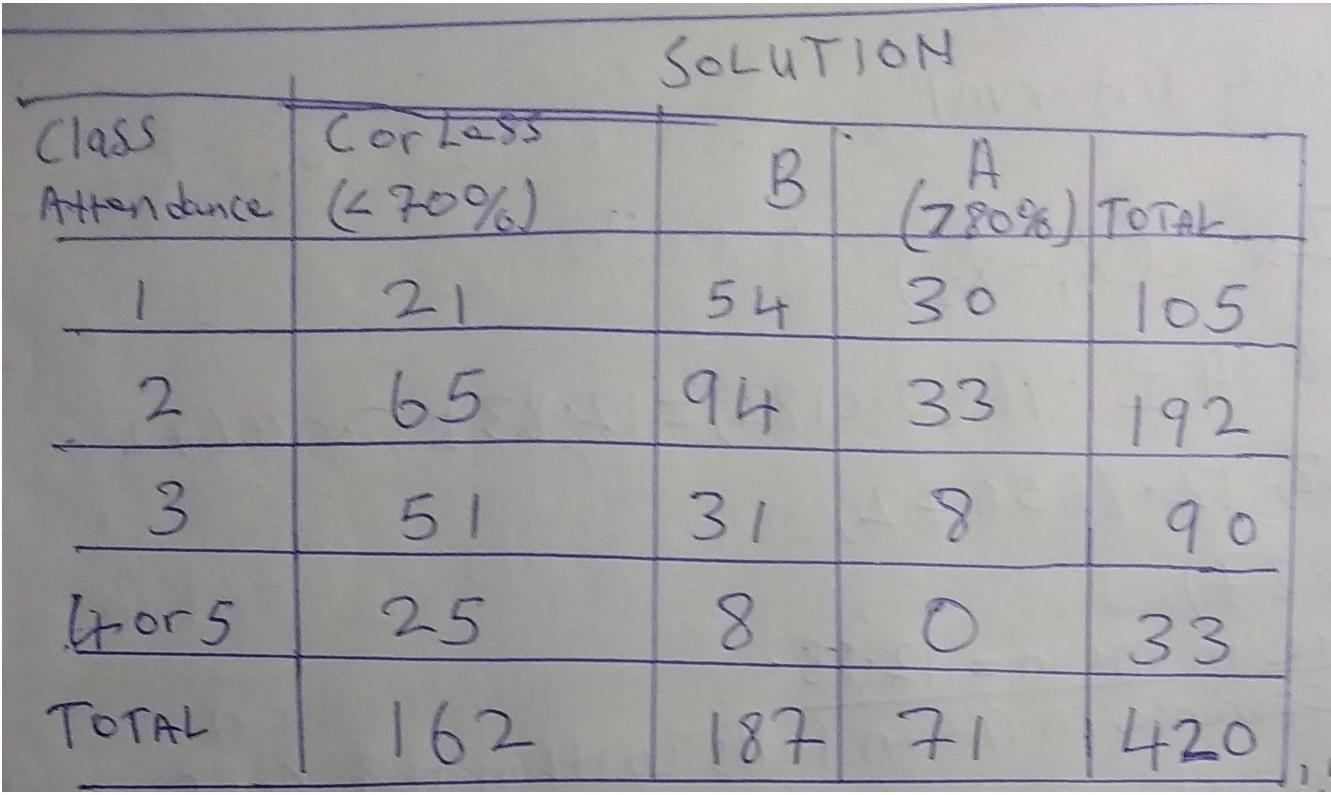 SOLUTION
Class Attendance | C or Less (<70%) | B | A (780%) | TOTAL
1 | 21 | 54 | 30 | 105
2 | 65 | 94 | 33 | 192
3 | 51 | 31 | 8 | 90
4 or 5 | 25 | 8 | 0 | 33
TOTAL | 162 | 187 | 71 | 420